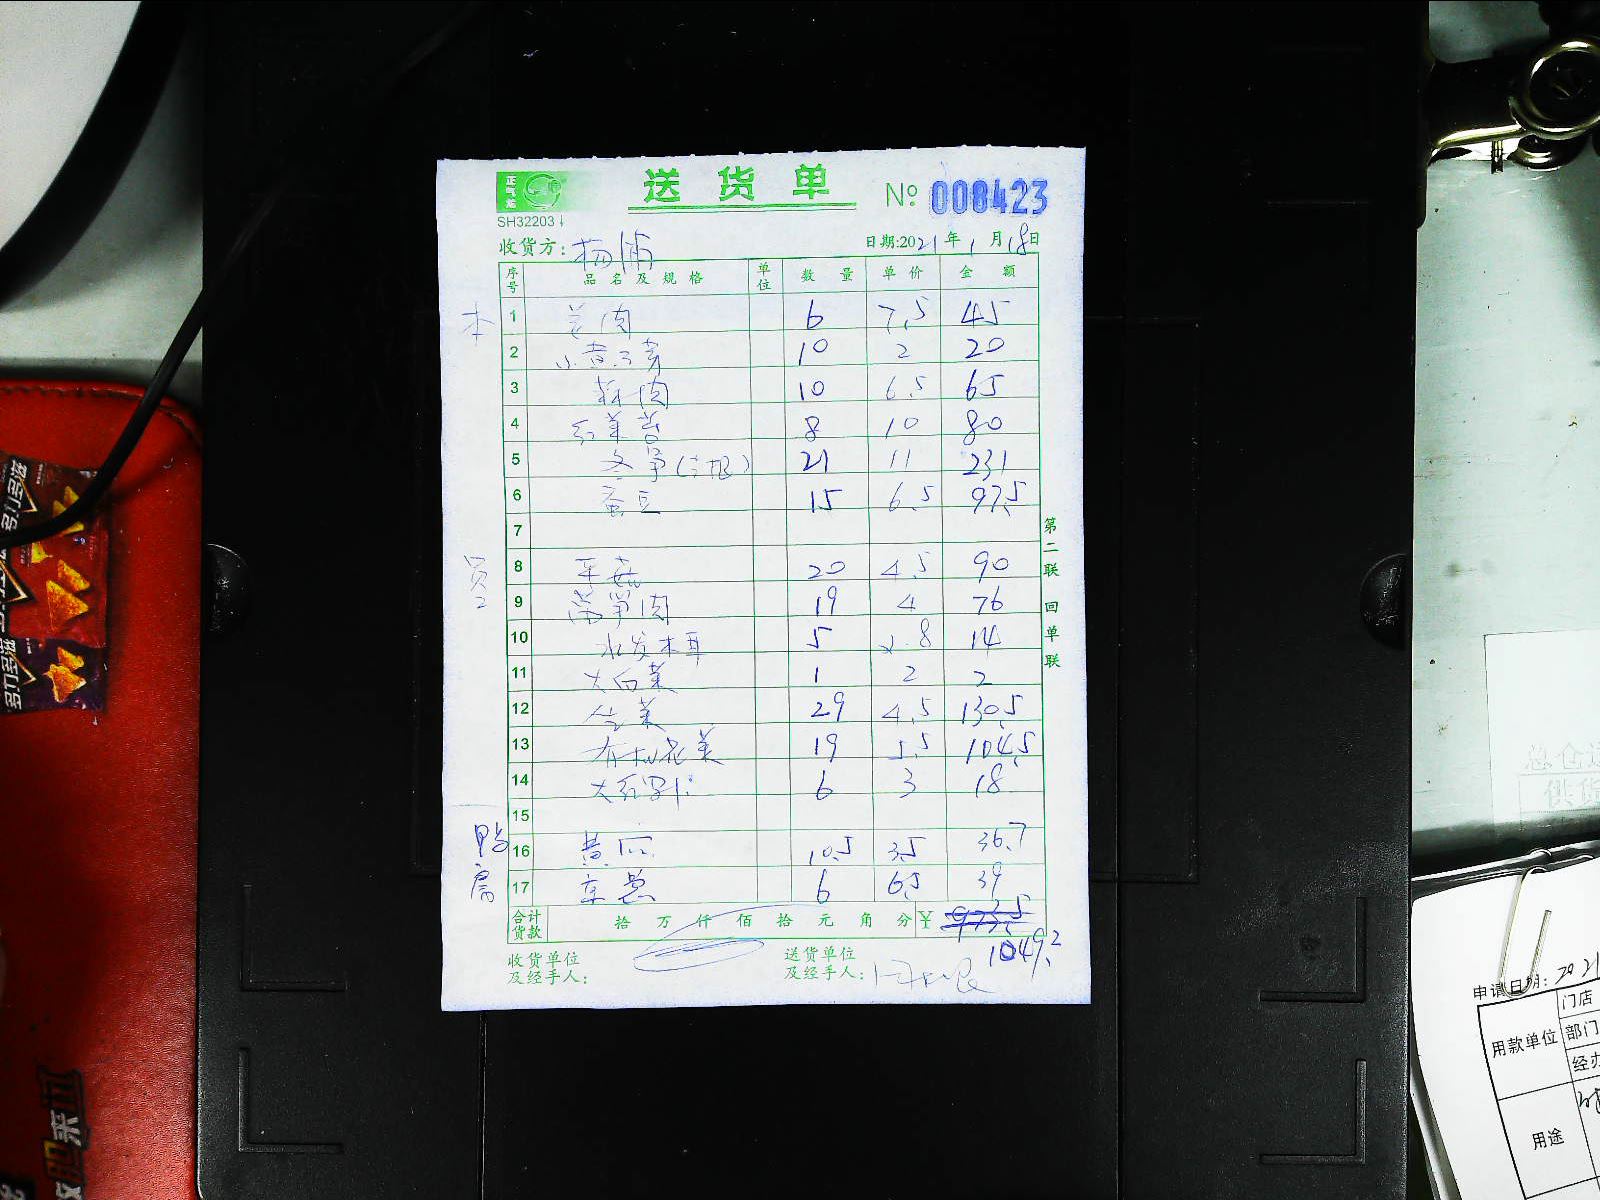 正气龙
送货单 № 008423
SH32203
收货方: 杨浦 日期:2021年1月18日
序号 品名及规格 单位 数量 单价 金额
本 1 6 7.5 45
2 10 2 20
3 10 6.5 65
4 8 10 80
5 21 11 231
6 蚕豆 15 6.5 97.5
7
员工 8 平菇 20 4.5 90
9 莴笋肉 19 4 76
10 水发木耳 5 2.8 14
11 大白菜 1 2 2
12 29 4.5 130.5
13 有机花菜 19 5.5 104.5
14 6 3 18
15
鸭房 16 黄瓜 10.5 3.5 36.7
17 京葱 6 6.5 39
合计货款 拾 万 仟 佰 拾 元 角 分 ¥ 973.5
1049.2
收货单位及经手人:
送货单位及经手人:
第二联 回单联
总仓
供货
申请日期: 2021
用款单位 门店
部门
经办
用途